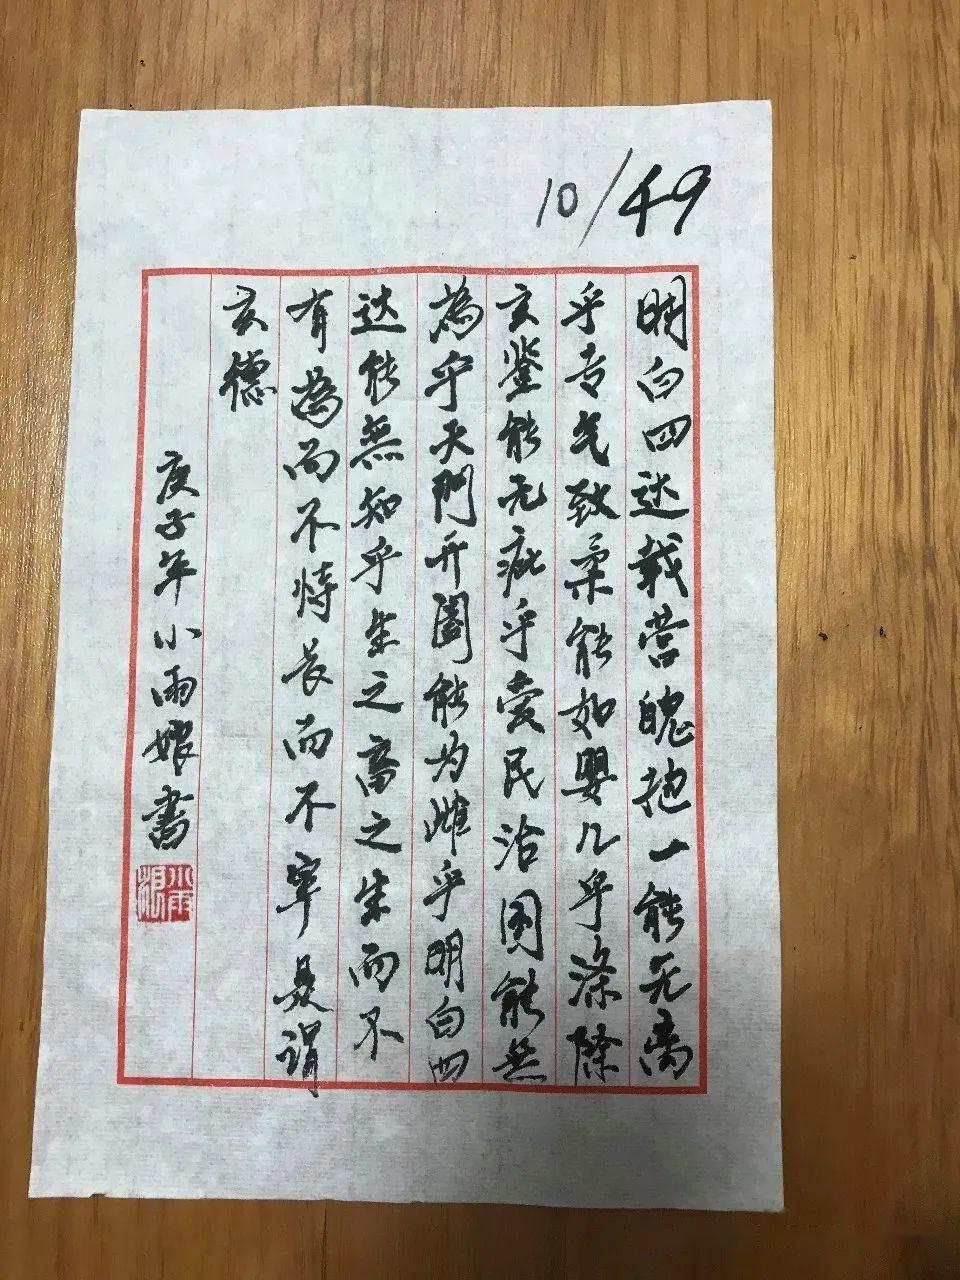 10/49
明白四达载营魄抱一能无离
乎专气致柔能如婴儿乎涤除
玄鉴能无疵乎爱民治国能無
為乎天門开阖能为雌乎明白四
达能無知乎生之畜之生而不
有為而不恃長而不宰是谓
玄德
庚子年小雨娘書
小雨娘